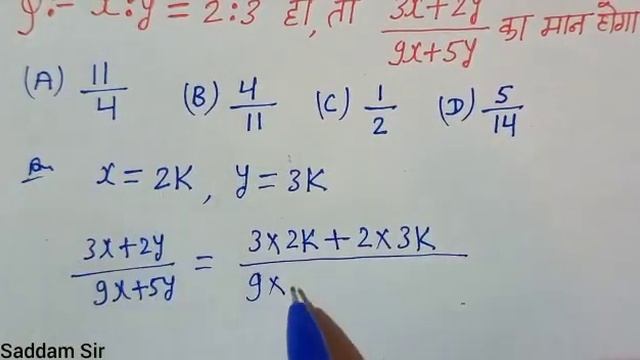 प्र:- x:y = 2:3 हो, तो (3x+2y)/(9x+5y) का मान होगा
(A) 11/4 (B) 4/11 (C) 1/2 (D) 5/14
x = 2K, y = 3K
(3x+2y)/(9x+5y) = (3×2K+2×3K)/(9×
Saddam Sir